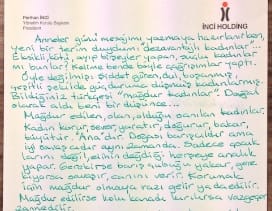 Perihan İNCİ
Yönetim Kurulu Başkanı
President
İNCİ HOLDİNG
Anneler günü mesajımı yazmaya hazırlanırken,
yeni bir terim duydum: dezavantajlı kadınlar...
Eksikli, kötü, ayıp bişeyler yapan, suçlu kadınlar
mı bunlar? Kelime bende böyle çağrışımlar yaptı.
Öyle değilmiş. Şiddet gören, dul, boşanmış
çeşitli şekilde güç duruma düşmüş kadınlarmış.
bildiğimiz türkçe "mağdur kadınlar". Doğal
olarak aldı beni bir düşünce...
Mağdur edilen, olan, olduğu sanılan kadınlar.
Kadın korur, sever, yaratır, doğurur, bakar,
büyütür. "Ana"dır. Doğası barışçıldır ama
iyi savaşcıdır aynı zamanda. Sadece çocuk
larını değil, elinin değdiği herşeye analık
yapar. Gerekirse barış çubuğu yakar, gene
biyorsa savaşır, canını verir. Korumak
için mağdur olmaya razı gelir ya da edilir.
Mağdur edilirse kolu kanadı kırılırsa vazgeçer
zannedilir.